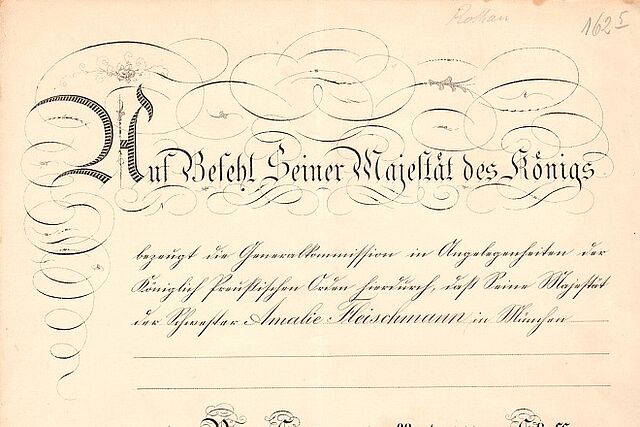 162
Auf Befehl Seiner Majestät des Königs
bezeugt die Generalkommission in Angelegenheiten der
Königlich Preußischen Orden hierdurch, daß Seine Majestät
der Schwester Amalie Fleischmann in München